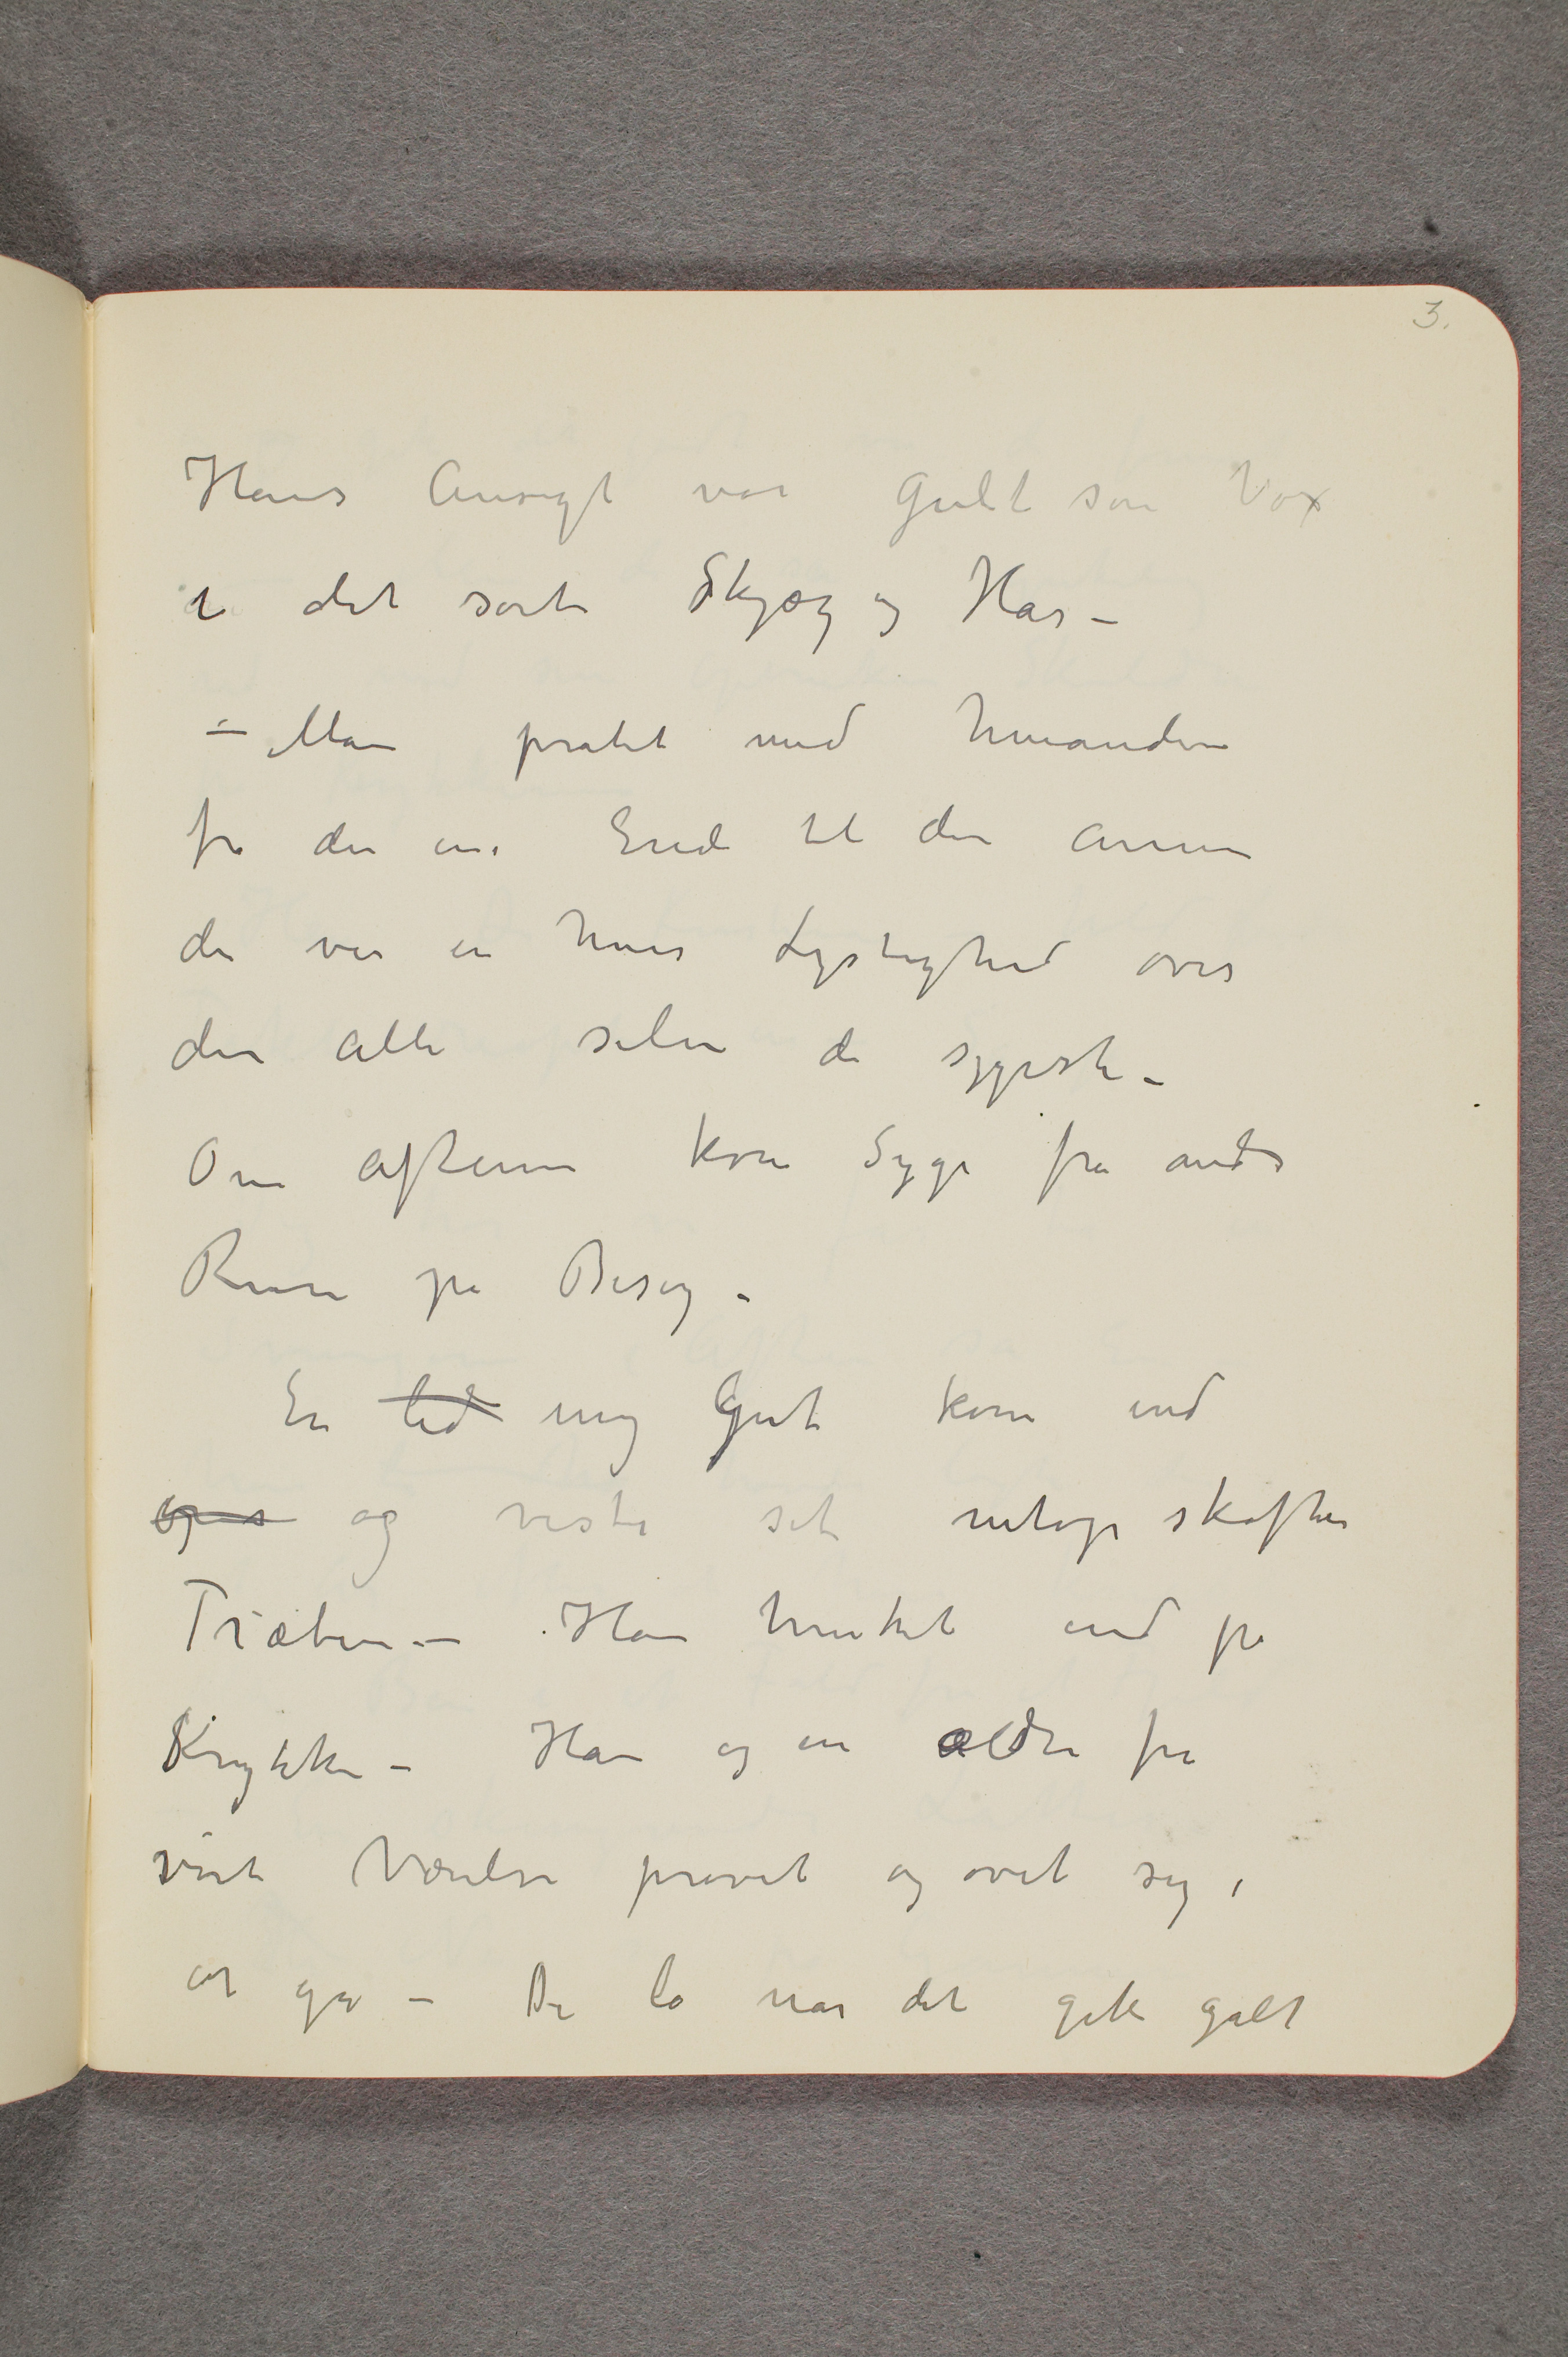 3.
Hans Ansigt var gult som Vox
i det sorte Skjæg og Hår –
– Man pratet med hverandre
fra den ene Ende til den annen
der var en hver Lystighed over
dem alle selv de sygeste –
Om aftenen kom Syge fra andre
Rum på Besøg –
En lid ung Gut kom ind
og viste sit netop skaftede
Træben – Han hinket ind på
Krykker – Han og en ældre fra
vårt Værelse prøvet og øvet sig i
at gå – De lo når det gik galt